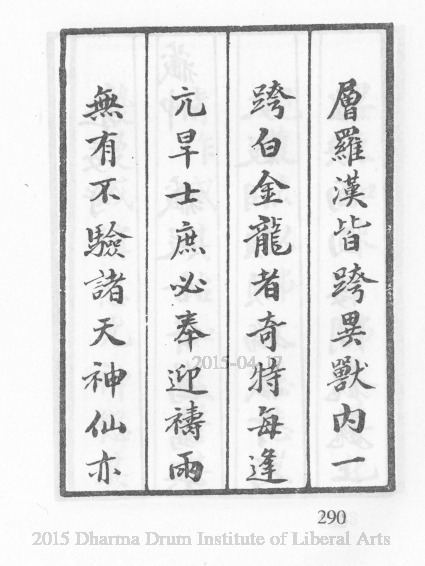 層羅漢皆跨異獸內一
跨白金龍者奇特每逢
亢旱士庶必奉迎禱雨
無有不驗諸天神仙亦
2015-04-17
290
2015 Dharma Drum Institute of Liberal Arts